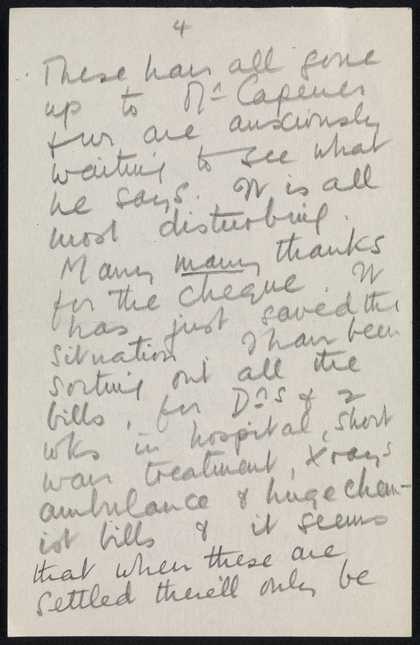 4
These have all gone
up to Mr Capener
& we are anxiously
waiting to see what
he says. It is all
most disturbing.
Many many thanks
for the cheque. It
has just saved the
situation I have been
sorting out all the
bills, for Drs & 2
wks in hospital, short
wave treatment, Xrays
ambulance & huge chem-
ist bills & it seems
that when these are
settled there'll only be